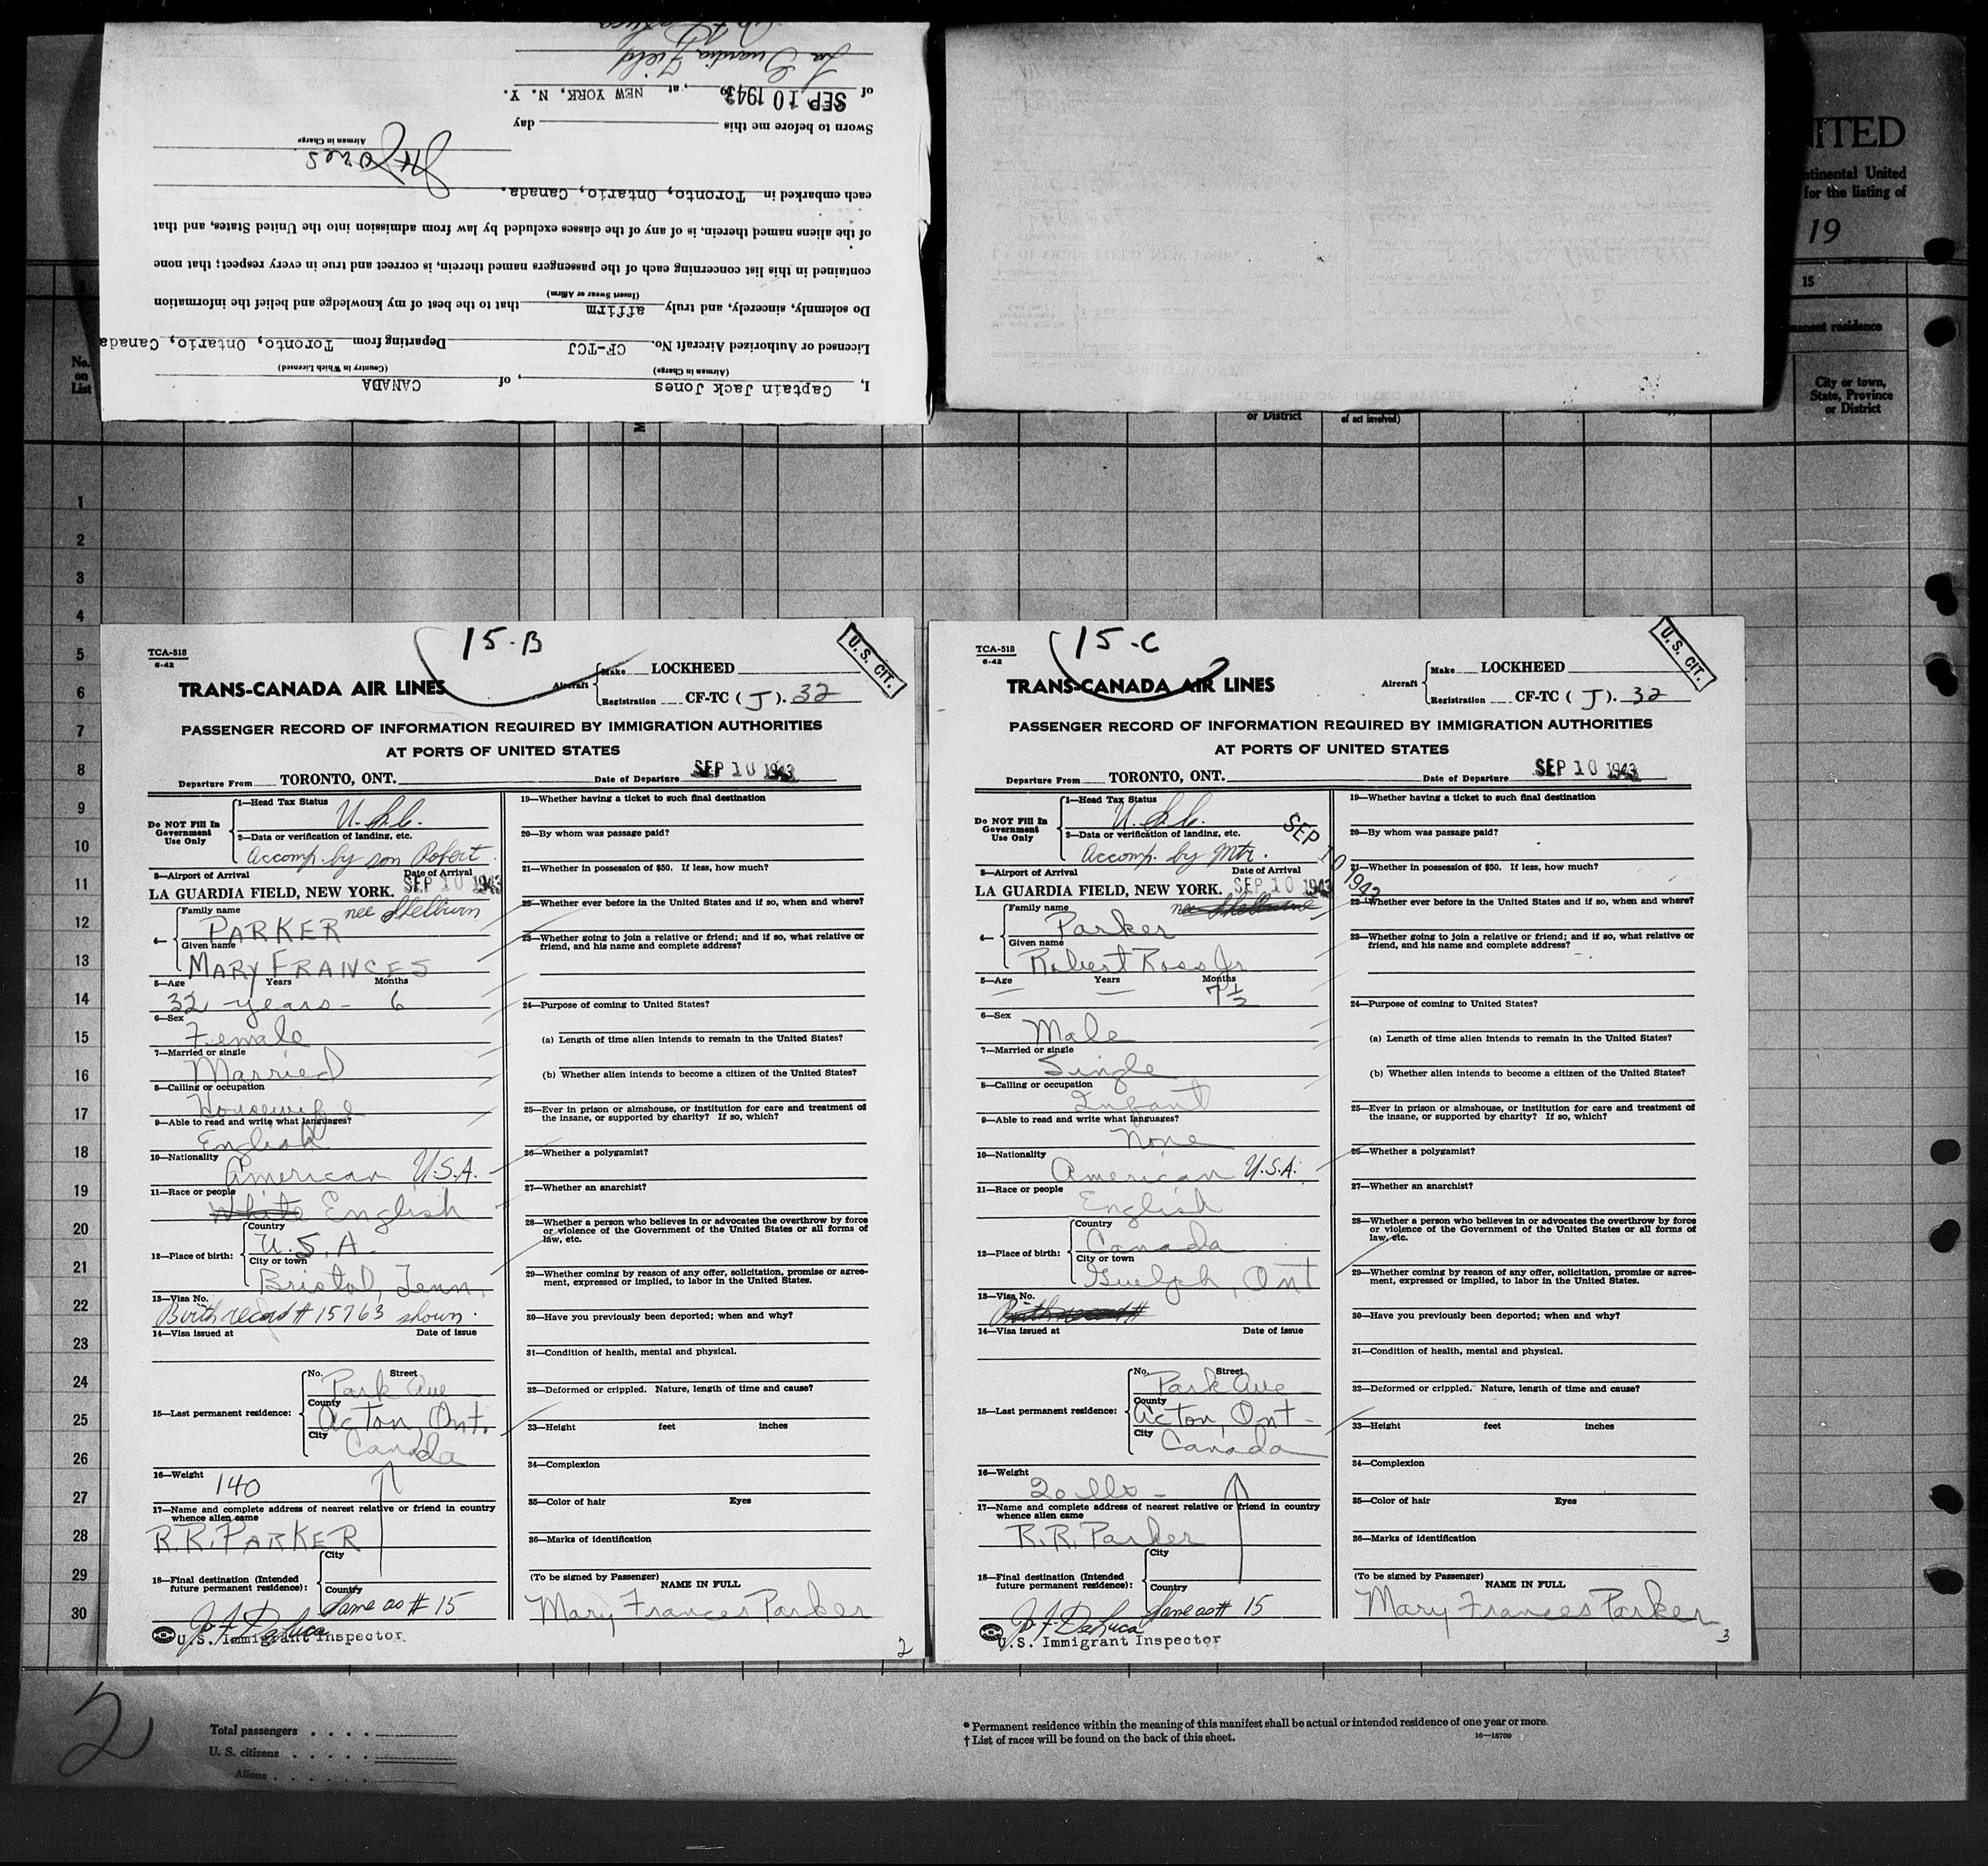 I, Captain Jack Jones, of CANADA
(Airman in Charge) (Country in Which Licensed)
Licensed or Authorized Aircraft No. CF-TCJ Departing from Toronto, Ontario, Canada
Do solemnly, sincerely, and truly affirm that to the best of my knowledge and belief the information
(Insert Swear or Affirm)
contained in this list concerning each of the passengers named therein, is correct and true in every respect; that none
of the aliens named therein, is of any of the classes excluded by law from admission into the United States, and that
each embarked in Toronto, Ontario, Canada.
Jones
Airman in Charge
Sworn to before me this day
of SEP 10 1943, at NEW YORK, N. Y.
La Guardia Field
NITED
ntinental United
for the listing of
19
15
manent residence
City or town,
State, Province
or District
No.
on
List
or District
of act involved)
1
2
3
4
5
6
7
8
9
10
11
12
13
14
15
16
17
18
19
20
21
22
23
24
25
26
27
28
29
30
15-B
U. S. CIT.
TCA-518
6-42
TRANS-CANADA AIR LINES
Aircraft
Make LOCKHEED
Registration CF-TC ( J ). 32
PASSENGER RECORD OF INFORMATION REQUIRED BY IMMIGRATION AUTHORITIES
AT PORTS OF UNITED STATES
Departure From TORONTO, ONT. Date of Departure SEP 10 1943
Do NOT Fill In
Government
Use Only
1—Head Tax Status
U.S.C.
2—Data or verification of landing, etc.
Accomp. by son Robert.
3—Airport of Arrival Date of Arrival
LA GUARDIA FIELD, NEW YORK. SEP 10 1943
4— Family name
PARKER nee Shelburn
Given name
MARY FRANCES
5—Age Years Months
32 years - 6
6—Sex
Female
7—Married or single
Married
8—Calling or occupation
Housewife
9—Able to read and write what languages?
English
10—Nationality
American U.S.A.
11—Race or people
White English
12—Place of birth:
Country
U.S.A.
City or town
Bristol, Tenn.
13—Visa No.
Birth record # 15763 shown.
14—Visa issued at Date of issue
15—Last permanent residence:
No. Street
Park Ave
County
Acton, Ont.
City
Canada
16—Weight
140
17—Name and complete address of nearest relative or friend in country
whence alien came
R.R. PARKER
18—Final destination (Intended
future permanent residence):
City
Country
Same as # 15
J. F. DeLuca
U.S. Immigrant Inspector
19—Whether having a ticket to such final destination
20—By whom was passage paid?
21—Whether in possession of $50. If less, how much?
22—Whether ever before in the United States and if so, when and where?
23—Whether going to join a relative or friend; and if so, what relative or
friend, and his name and complete address?
24—Purpose of coming to United States?
(a) Length of time alien intends to remain in the United States?
(b) Whether alien intends to become a citizen of the United States?
25—Ever in prison or almshouse, or institution for care and treatment of
the insane, or supported by charity? If so, which?
26—Whether a polygamist?
27—Whether an anarchist?
28—Whether a person who believes in or advocates the overthrow by force
or violence of the Government of the United States or all forms of
law, etc.
29—Whether coming by reason of any offer, solicitation, promise or agree-
ment, expressed or implied, to labor in the United States.
30—Have you previously been deported; when and why?
31—Condition of health, mental and physical.
32—Deformed or crippled. Nature, length of time and cause?
33—Height feet inches
34—Complexion
35—Color of hair Eyes
36—Marks of identification
(To be signed by Passenger) NAME IN FULL
Mary Frances Parker
2
15-C
U. S. CIT.
TCA-518
6-42
TRANS-CANADA AIR LINES
Aircraft
Make LOCKHEED
Registration CF-TC ( J ). 32
PASSENGER RECORD OF INFORMATION REQUIRED BY IMMIGRATION AUTHORITIES
AT PORTS OF UNITED STATES
Departure From TORONTO, ONT. Date of Departure SEP 10 1943
Do NOT Fill In
Government
Use Only
1—Head Tax Status
U.S.C.
2—Data or verification of landing, etc.
Accomp. by Mtr.
SEP 10 1943
3—Airport of Arrival Date of Arrival
LA GUARDIA FIELD, NEW YORK. SEP 10 1943
4— Family name
Parker nee Shelburne
Given name
Robert Ross Jr
5—Age Years Months
7 1/2
6—Sex
Male
7—Married or single
Single
8—Calling or occupation
Infant
9—Able to read and write what languages?
None
10—Nationality
American U.S.A.
11—Race or people
English
12—Place of birth:
Country
Canada
City or town
Guelph, Ont
13—Visa No.
Birth record #
14—Visa issued at Date of issue
15—Last permanent residence:
No. Street
Park Ave
County
Acton, Ont.
City
Canada
16—Weight
20 lbs -
17—Name and complete address of nearest relative or friend in country
whence alien came
R.R. Parker
18—Final destination (Intended
future permanent residence):
City
Country
Same as # 15
J. F. DeLuca
U.S. Immigrant Inspector
19—Whether having a ticket to such final destination
20—By whom was passage paid?
21—Whether in possession of $50. If less, how much?
22—Whether ever before in the United States and if so, when and where?
23—Whether going to join a relative or friend; and if so, what relative or
friend, and his name and complete address?
24—Purpose of coming to United States?
(a) Length of time alien intends to remain in the United States?
(b) Whether alien intends to become a citizen of the United States?
25—Ever in prison or almshouse, or institution for care and treatment of
the insane, or supported by charity? If so, which?
26—Whether a polygamist?
27—Whether an anarchist?
28—Whether a person who believes in or advocates the overthrow by force
or violence of the Government of the United States or all forms of
law, etc.
29—Whether coming by reason of any offer, solicitation, promise or agree-
ment, expressed or implied, to labor in the United States.
30—Have you previously been deported; when and why?
31—Condition of health, mental and physical.
32—Deformed or crippled. Nature, length of time and cause?
33—Height feet inches
34—Complexion
35—Color of hair Eyes
36—Marks of identification
(To be signed by Passenger) NAME IN FULL
Mary Frances Parker
3
2
Total passengers . . . .
U. S. citizens . . . . .
Aliens . . . . . .
* Permanent residence within the meaning of this manifest shall be actual or intended residence of one year or more.
† List of races will be found on the back of this sheet.
16—18709